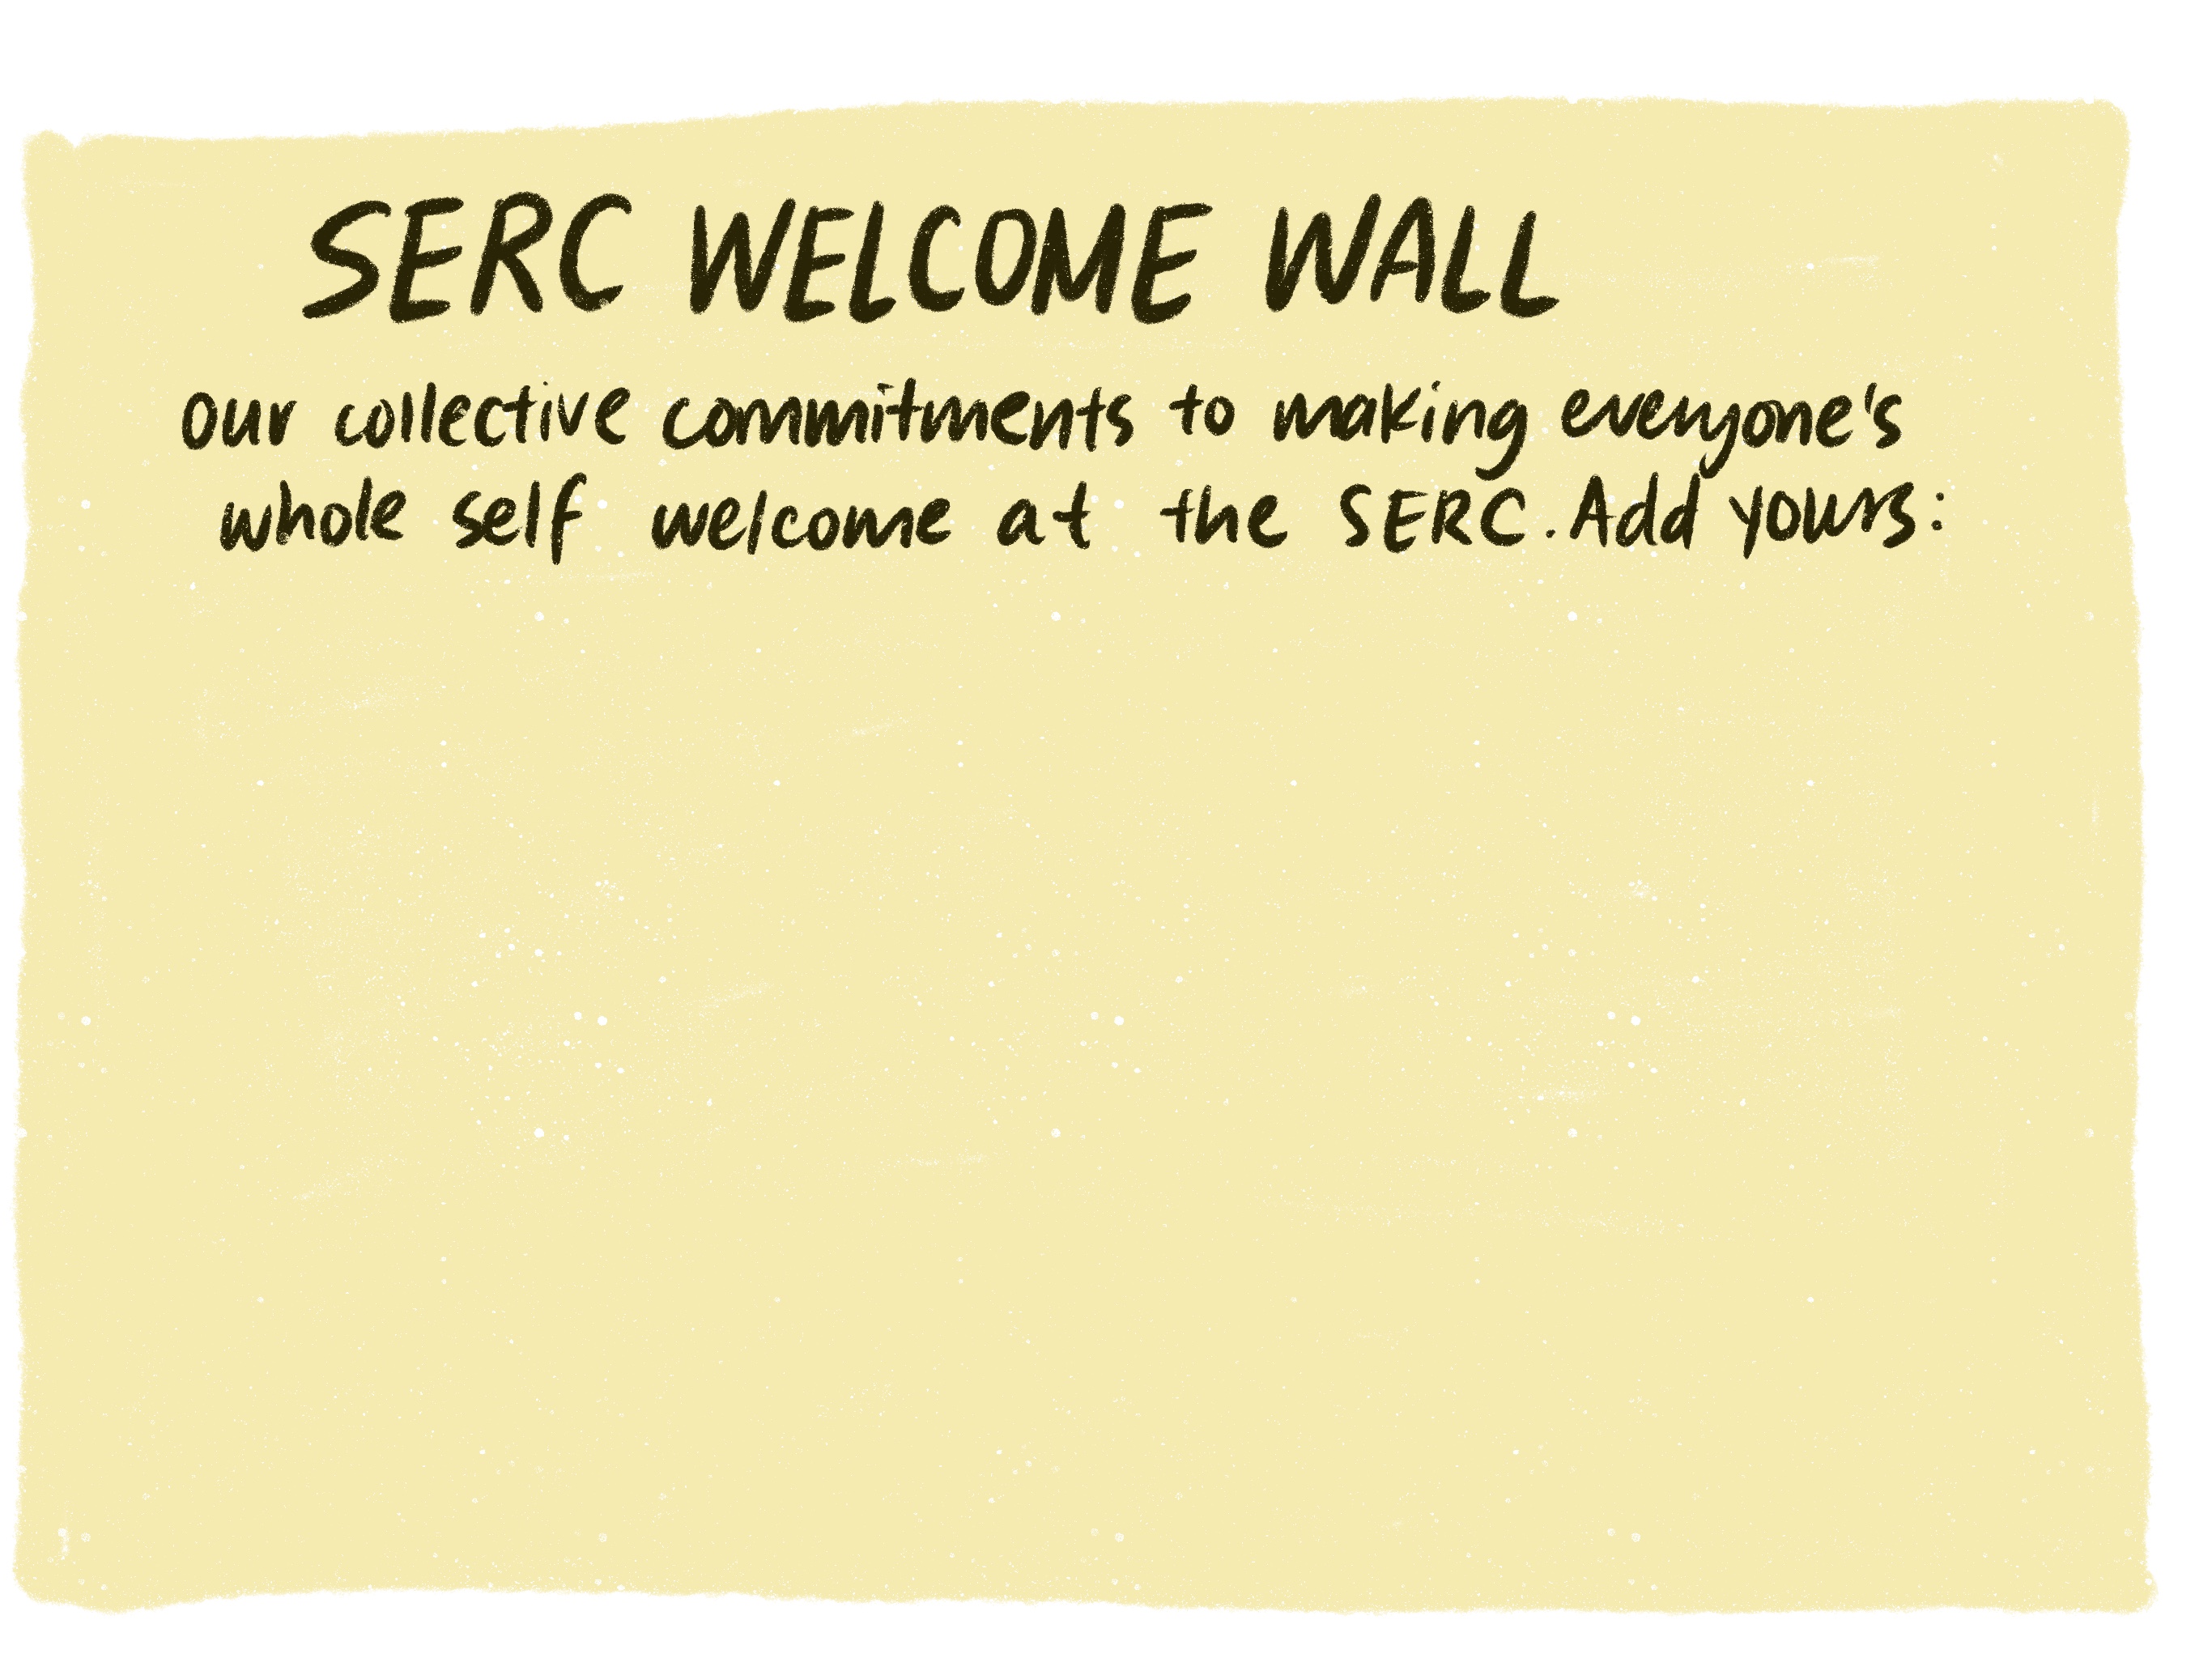 SERC WELCOME WALL
our collective commitments to making everyone's
whole self welcome at the SERC. Add yours: